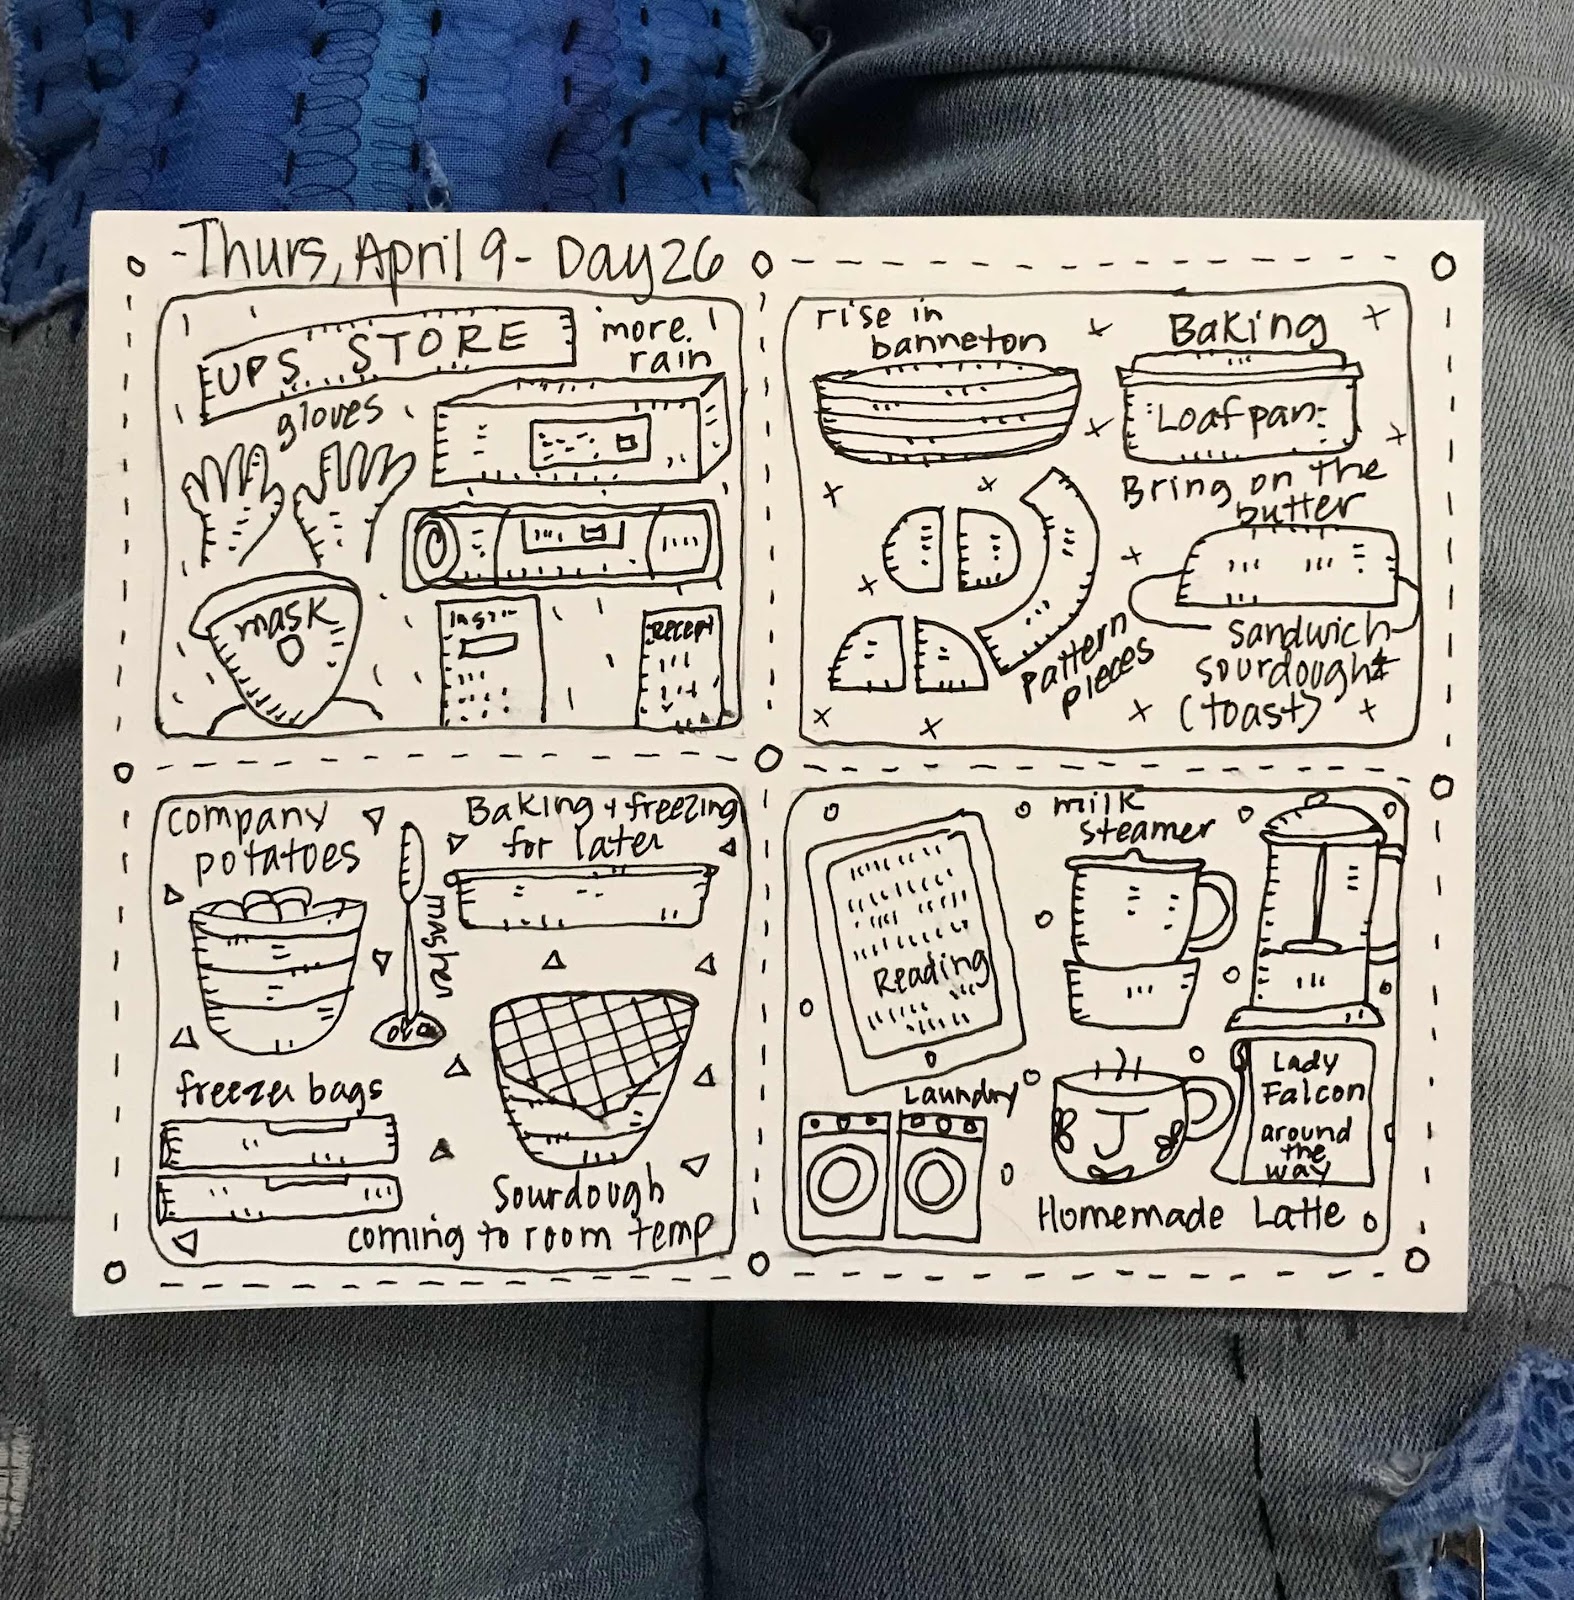 -Thurs, April 9- Day 26
UPS STORE
more
rain
gloves
mask
Receipt
rise in
banneton
Baking
Loaf pan
Bring on the
butter
Pattern
pieces
Sandwich
sourdough
(toast)
company
potatoes
masher
Baking + freezing
for later
freezer bags
Sourdough
coming to room temp
Reading
milk
steamer
Laundry
J
Lady
Falcon
around
the
way
Homemade Latte